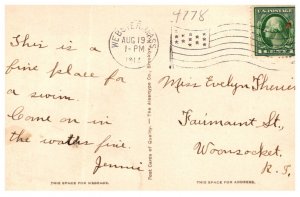 9778
WEBSTER, MASS.
AUG 19
1-PM
U.S. POSTAGE
This is a
fine place for
a swim.
Come on in
the water's fine.
Jennie
Post Cards of Quality. — The Albertype Co., Brooklyn
Miss Evelyn
Fairmount St.,
Woonsocket
R.I.
THIS SPACE FOR MESSAGE.
THIS SPACE FOR ADDRESS.